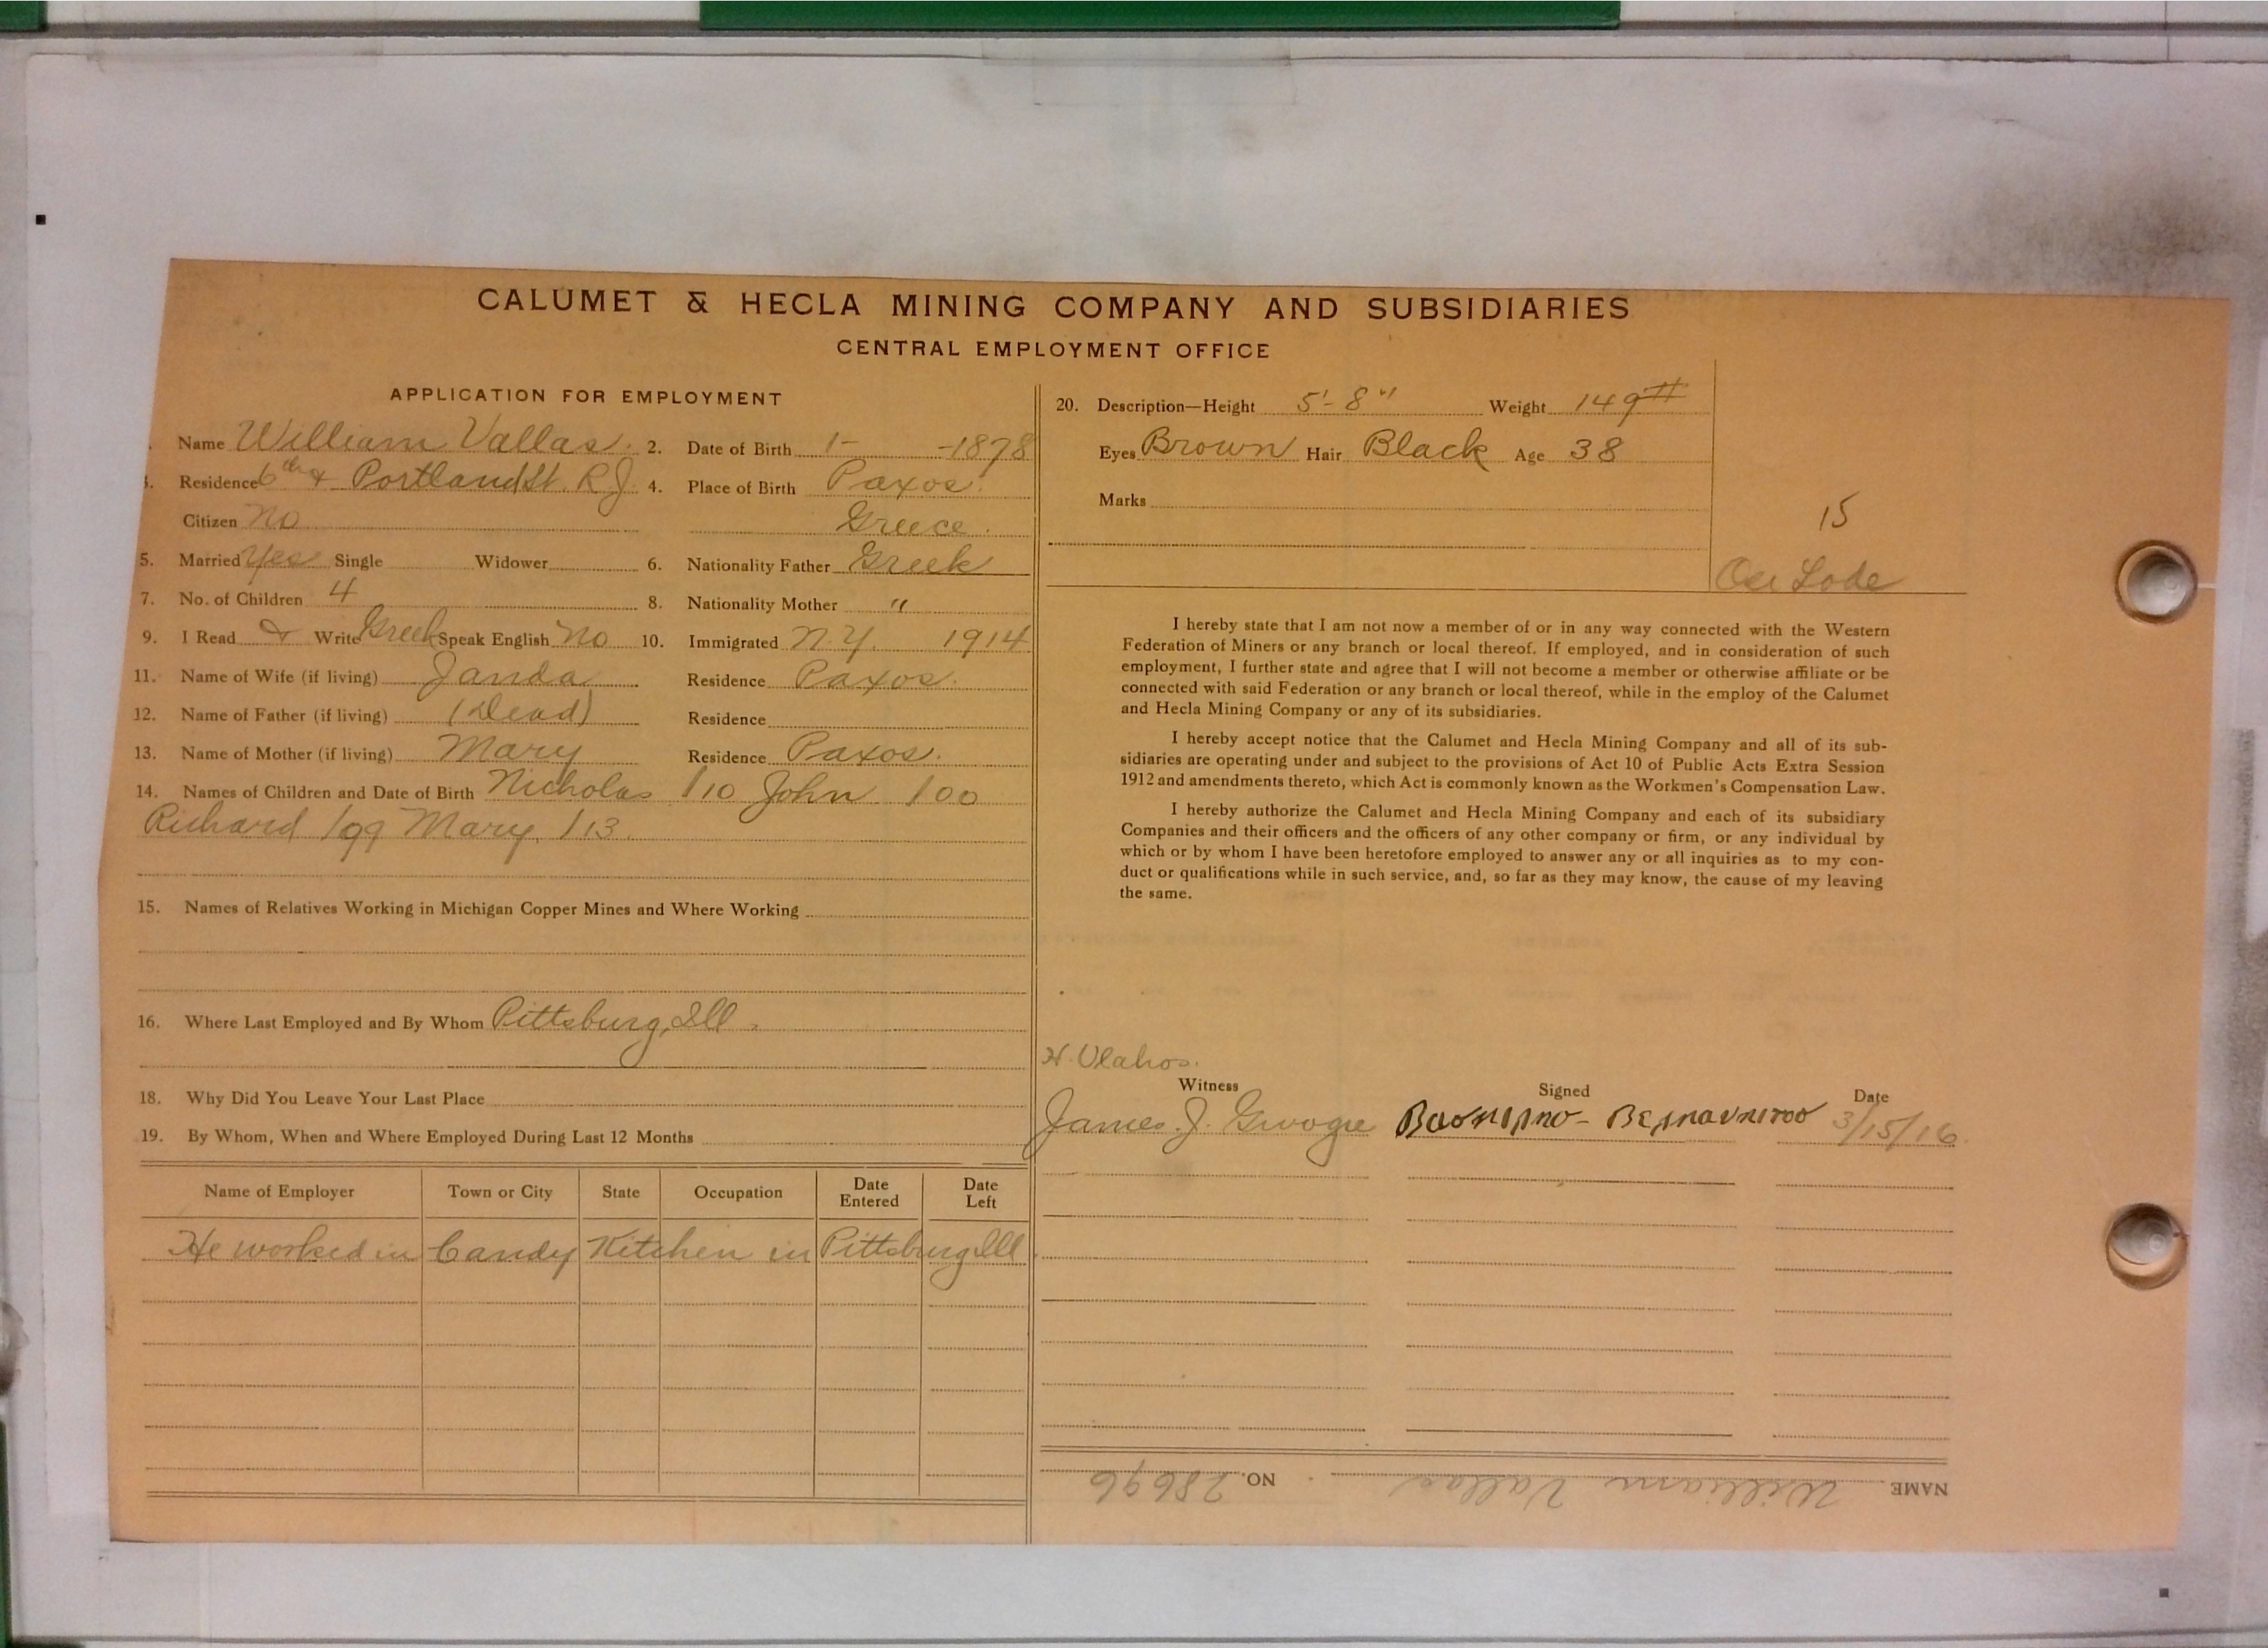 CALUMET & HECLA MINING COMPANY AND SUBSIDIARIES
CENTRAL EMPLOYMENT OFFICE
APPLICATION FOR EMPLOYMENT
Name William Vallas. 2. Date of Birth 1- -1878
Residence 6th & Portland St. R.J. 4. Place of Birth Paxos.
Citizen No Greece.
5. Married Yes Single Widower 6. Nationality Father Greek
7. No. of Children 4 8. Nationality Mother "
9. I Read & Write Greek Speak English No 10. Immigrated N.Y. 1914
11. Name of Wife (if living) Janda Residence Paxos.
12. Name of Father (if living) (Dead) Residence
13. Name of Mother (if living) Mary Residence Paxos.
14. Names of Children and Date of Birth Nicholas /10 John /00
Richard /99 Mary /13.
15. Names of Relatives Working in Michigan Copper Mines and Where Working
16. Where Last Employed and By Whom Pittsburg, Ill.
18. Why Did You Leave Your Last Place
19. By Whom, When and Where Employed During Last 12 Months
Name of Employer Town or City State Occupation Date Entered Date Left
He worked in Candy Kitchen in Pittsburg Ill
20. Description—Height 5'-8" Weight 149#
Eyes Brown Hair Black Age 38
Marks
15
Lode
I hereby state that I am not now a member of or in any way connected with the Western
Federation of Miners or any branch or local thereof. If employed, and in consideration of such
employment, I further state and agree that I will not become a member or otherwise affiliate or be
connected with said Federation or any branch or local thereof, while in the employ of the Calumet
and Hecla Mining Company or any of its subsidiaries.
I hereby accept notice that the Calumet and Hecla Mining Company and all of its sub-
sidiaries are operating under and subject to the provisions of Act 10 of Public Acts Extra Session
1912 and amendments thereto, which Act is commonly known as the Workmen's Compensation Law.
I hereby authorize the Calumet and Hecla Mining Company and each of its subsidiary
Companies and their officers and the officers of any other company or firm, or any individual by
which or by whom I have been heretofore employed to answer any or all inquiries as to my con-
duct or qualifications while in such service, and, so far as they may know, the cause of my leaving
the same.
H. Vlahos.
Witness Signed Date
James. J. 3/15/16.
NAME William Vallas NO. 28696